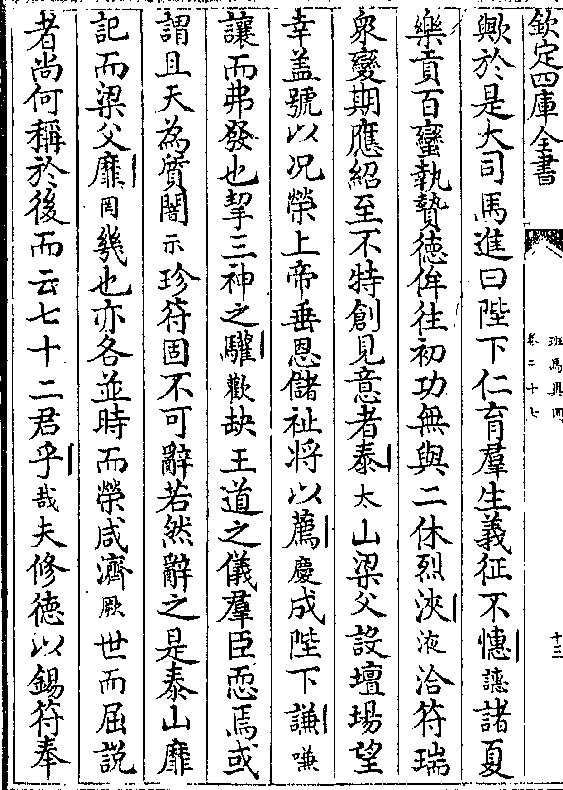 欽定四庫全書
班馬異同
卷二十七
十三
歟於是大司馬進曰陛下仁育羣生義征不憓譓諸夏
樂貢百蠻執贄德侔往初功無與二休烈浹液洽符瑞
衆變期應紹至不特創見意者泰太山梁父設壇場望
幸盖號以况榮上帝垂恩儲祉將以薦慶成陛下謙嗛
讓而弗發也挈三神之驩歡缺王道之儀羣臣恧焉或
謂且天為質闇示珍符固不可辭若然辭之是泰山靡
記而梁父靡罔幾也亦各並時而榮咸濟厥世而屈說
者尚何稱於後而云七十二君乎哉夫修德以錫符奉